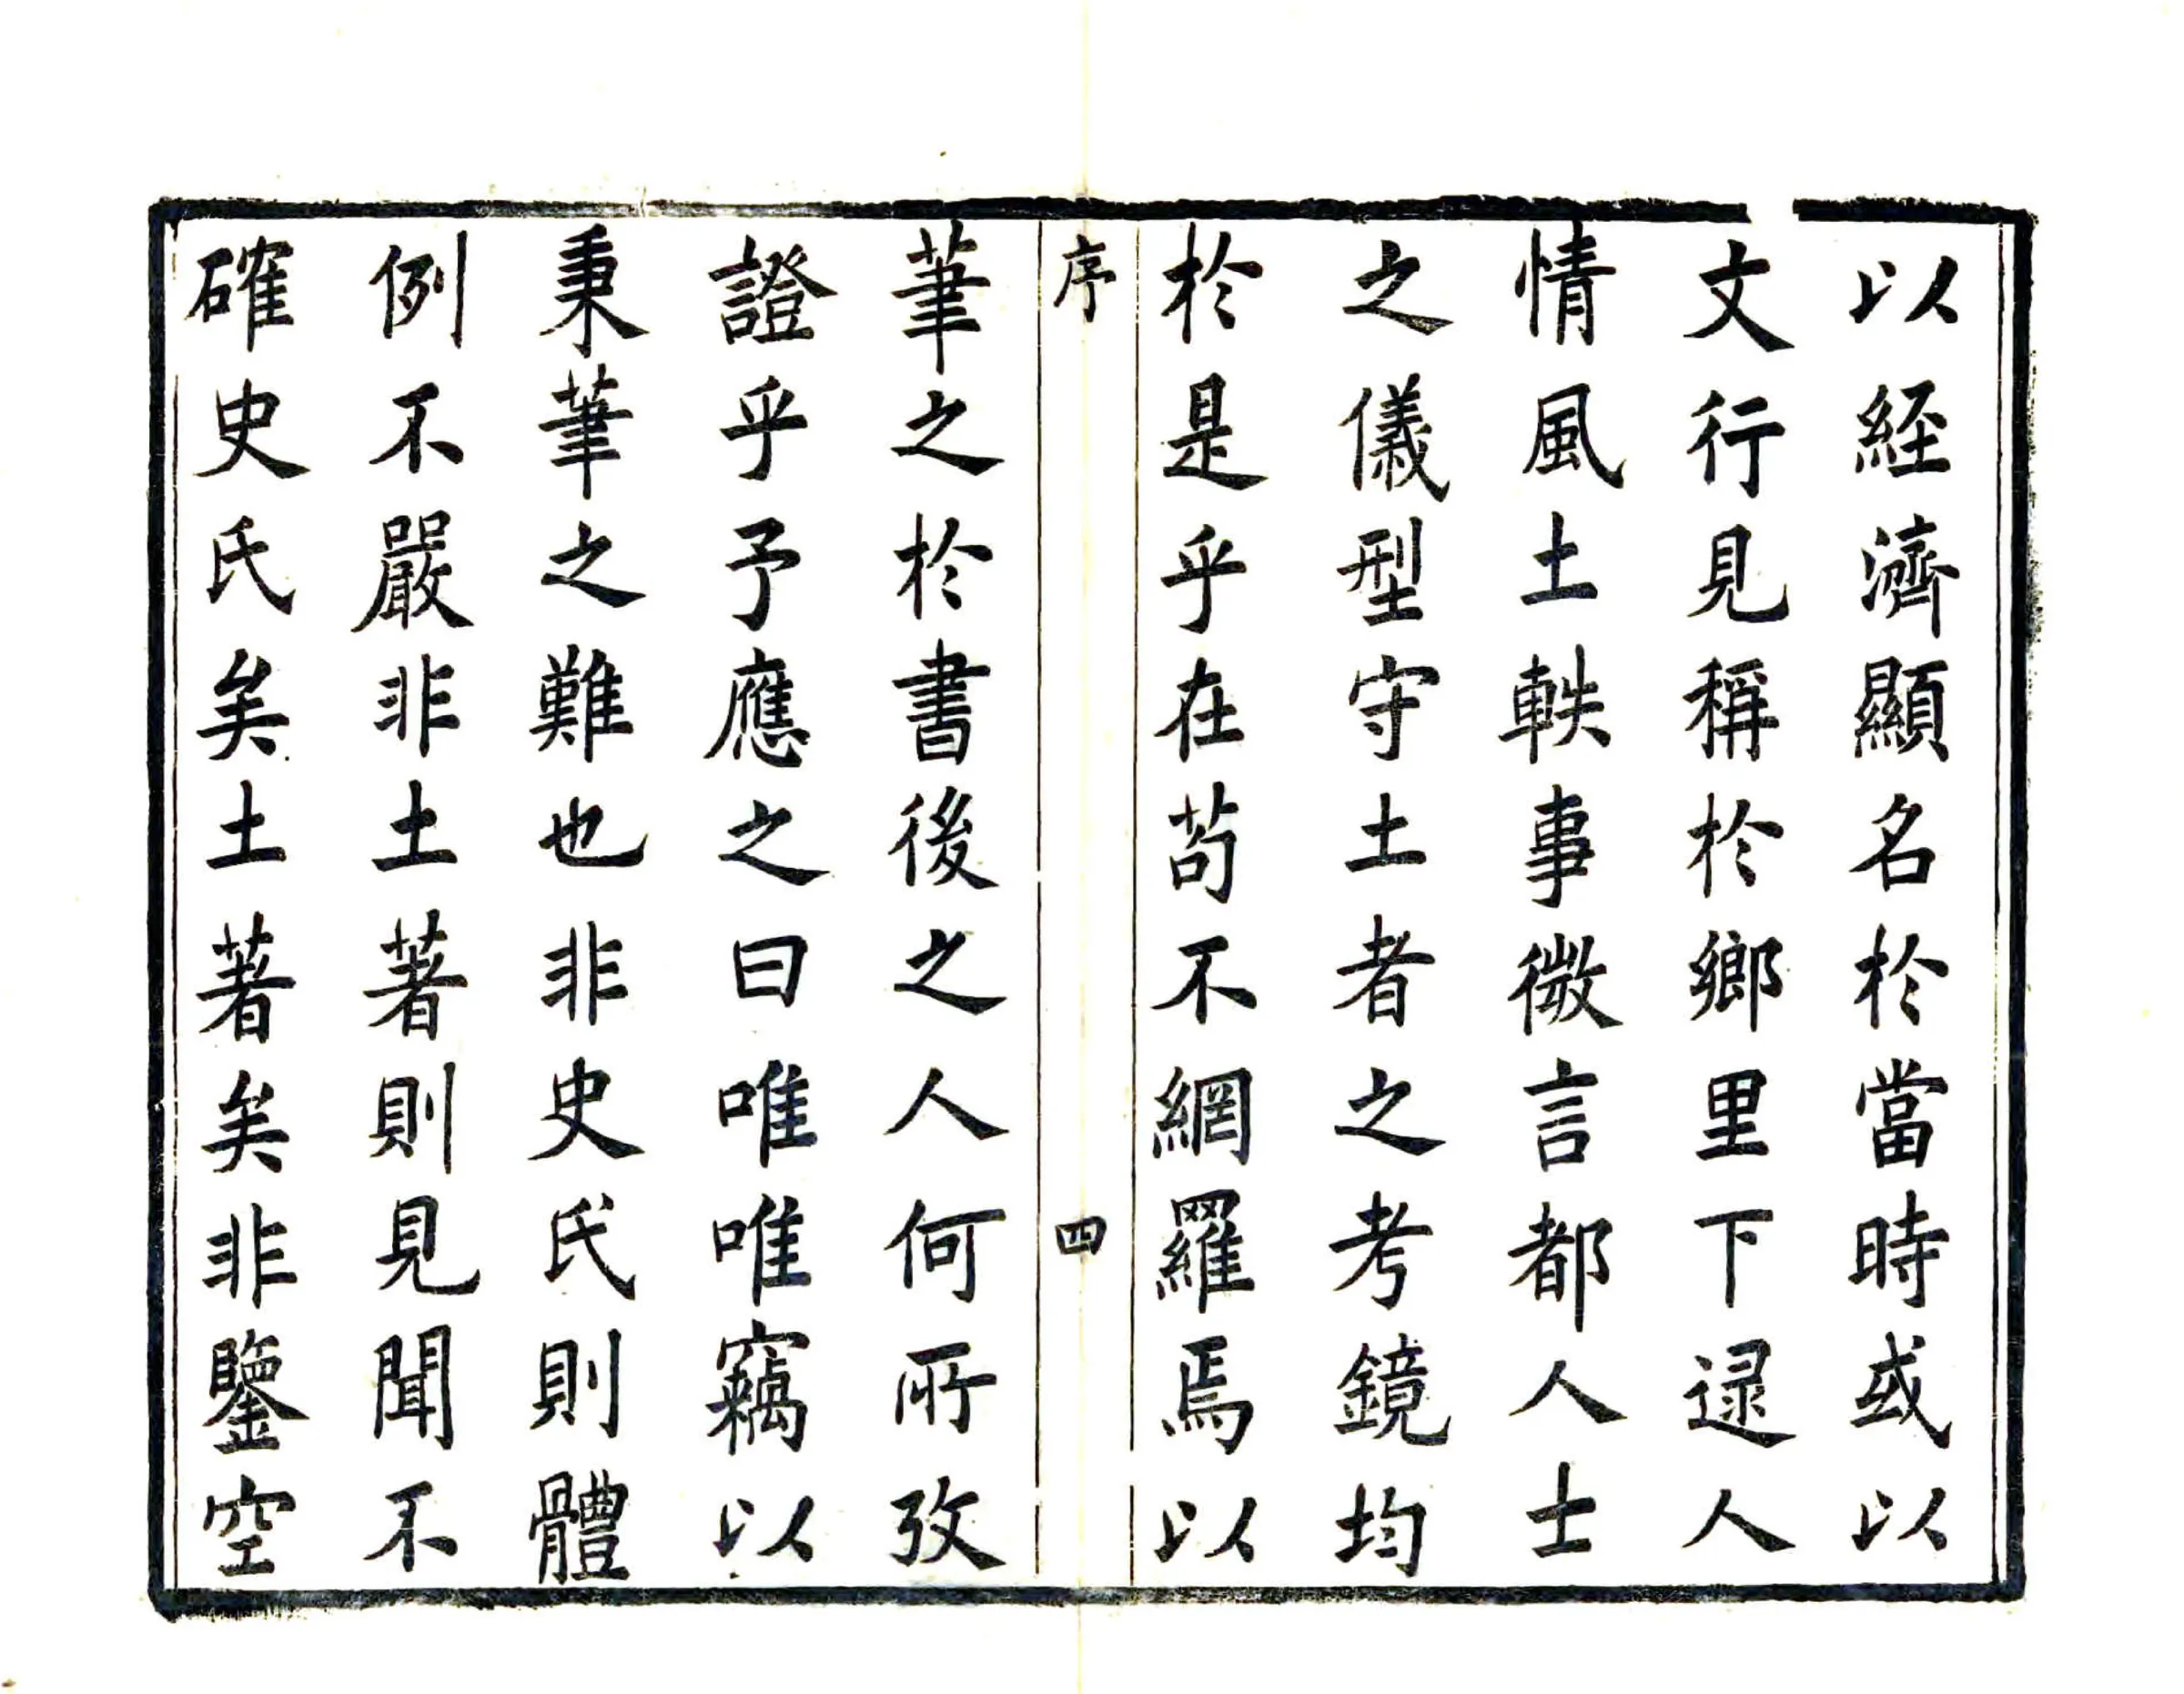 以経濟顯名於當時或以
文行見稱於鄉里下逯人
情風土軼事微言都人士
之儀型守土者之考鏡均
於是乎在苟不網羅焉以
序
四
筆之於書後之人何所攷
證乎予應之曰唯唯竊以
秉筆之難也非史氏則體
例不嚴非土著則見聞不
確史氏矣土著矣非鑒空